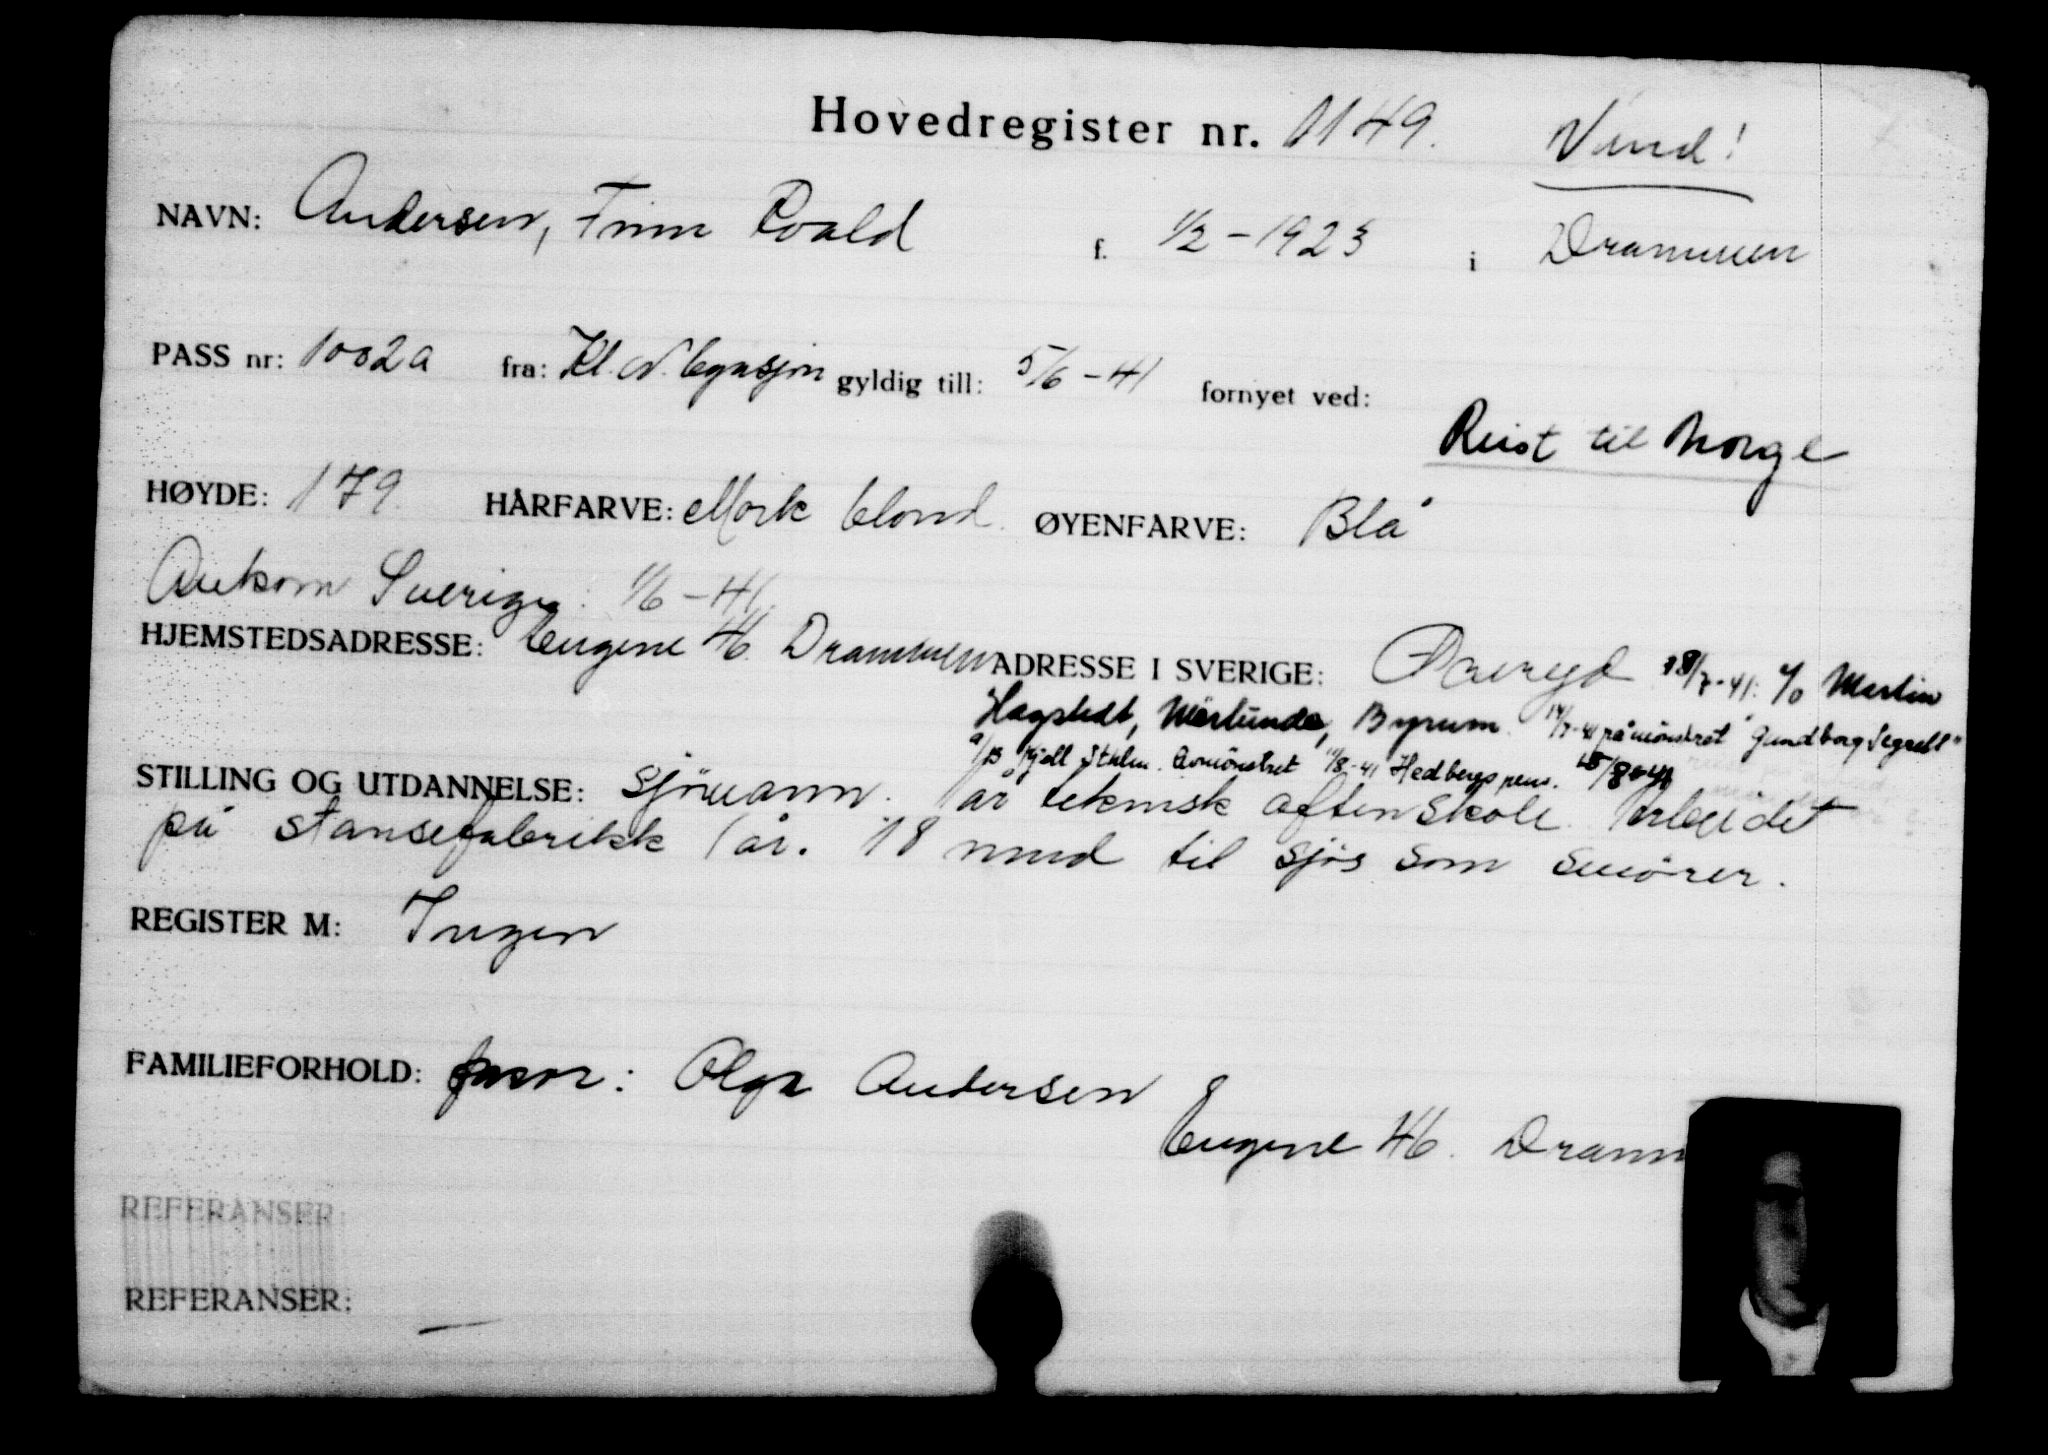 Hovedregister nr. 1149. Vend!
NAVN: Andersen, Finn Roald f. 1/2 - 1923 i Drammen
PASS nr: 1002a fra: Kgl. N. Legasjon gyldig till: 5/6 - 41 fornyet ved:
Reist til Norge
HØYDE: 179. HÅRFARVE: Mørk blond. ØYENFARVE: Blå
Ankom Sverige: 1/6 - 41.
HJEMSTEDSADRESSE: Eugene 46. Drammen ADRESSE I SVERIGE: Öreryd 18/7-41: c/o Martin
Hagstedt, Byrum. 14/7-41 påmönstret "Gundborg Segrell"
Kjell Sthlm. Avmönstret 11/8-41 Hedbergs pens. 15/8-41
STILLING OG UTDANNELSE: sjömann. 1 år teknisk aftenskole. Arbeidet
på stansefabrikk 1 år. 18 mnd til sjös som smörer.
REGISTER M: Ingen
FAMILIEFORHOLD: mor: Olga Andersen
Eugene 46. Dramm
REFERANSER:
REFERANSER: —